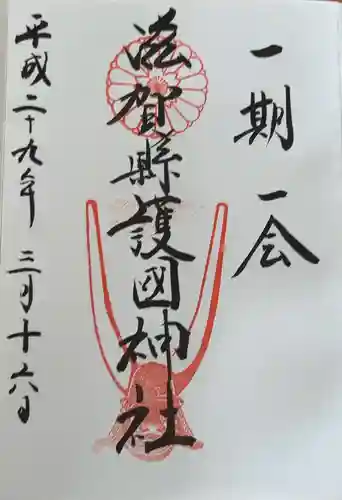 一期一会
滋賀縣護國神社
平成二十九年 三月十六日